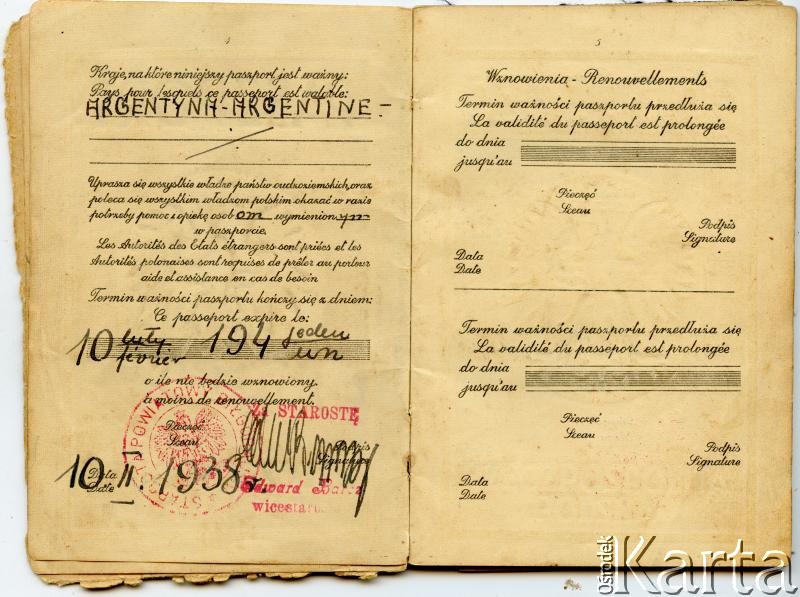 4
Kraje, na które niniejszy paszport jest ważny:
Pays pour lesquels ce passeport est valable:
ARGENTYNA-ARGENTINE-
Uprasza się wszystkie władze państw cudzoziemskich, oraz
poleca się wszystkim władzom polskim okazać w razie
potrzeby pomoc i opiekę osobom wymienionym
w paszporcie.
Les Autorités des Etats étrangers sont priées et les
Autorités polonaises sont requises de prêter au porteur
aide et assistance en cas de besoin
Termin ważności paszportu kończy się z dniem:
Ce passeport expire le:
10 luty 194 jeden
février un
o ile nie będzie wznowiony.
à moins de renouvellement.
Za STAROSTĘ
Pieczęć
Sceau
Podpis
Signature
10 II. 1938 r.
Data
Date
Edward
wicestarosta
5
Wznowienia - Renouvellements
Termin ważności paszportu przedłuża się
La validité du passeport est prolongée
do dnia
jusqu'au
Pieczęć
Sceau
Podpis
Signature
Data
Date
Termin ważności paszportu przedłuża się
La validité du passeport est prolongée
do dnia
jusqu'au
Pieczęć
Sceau
Podpis
Signature
Data
Date
ośrodek
Karta